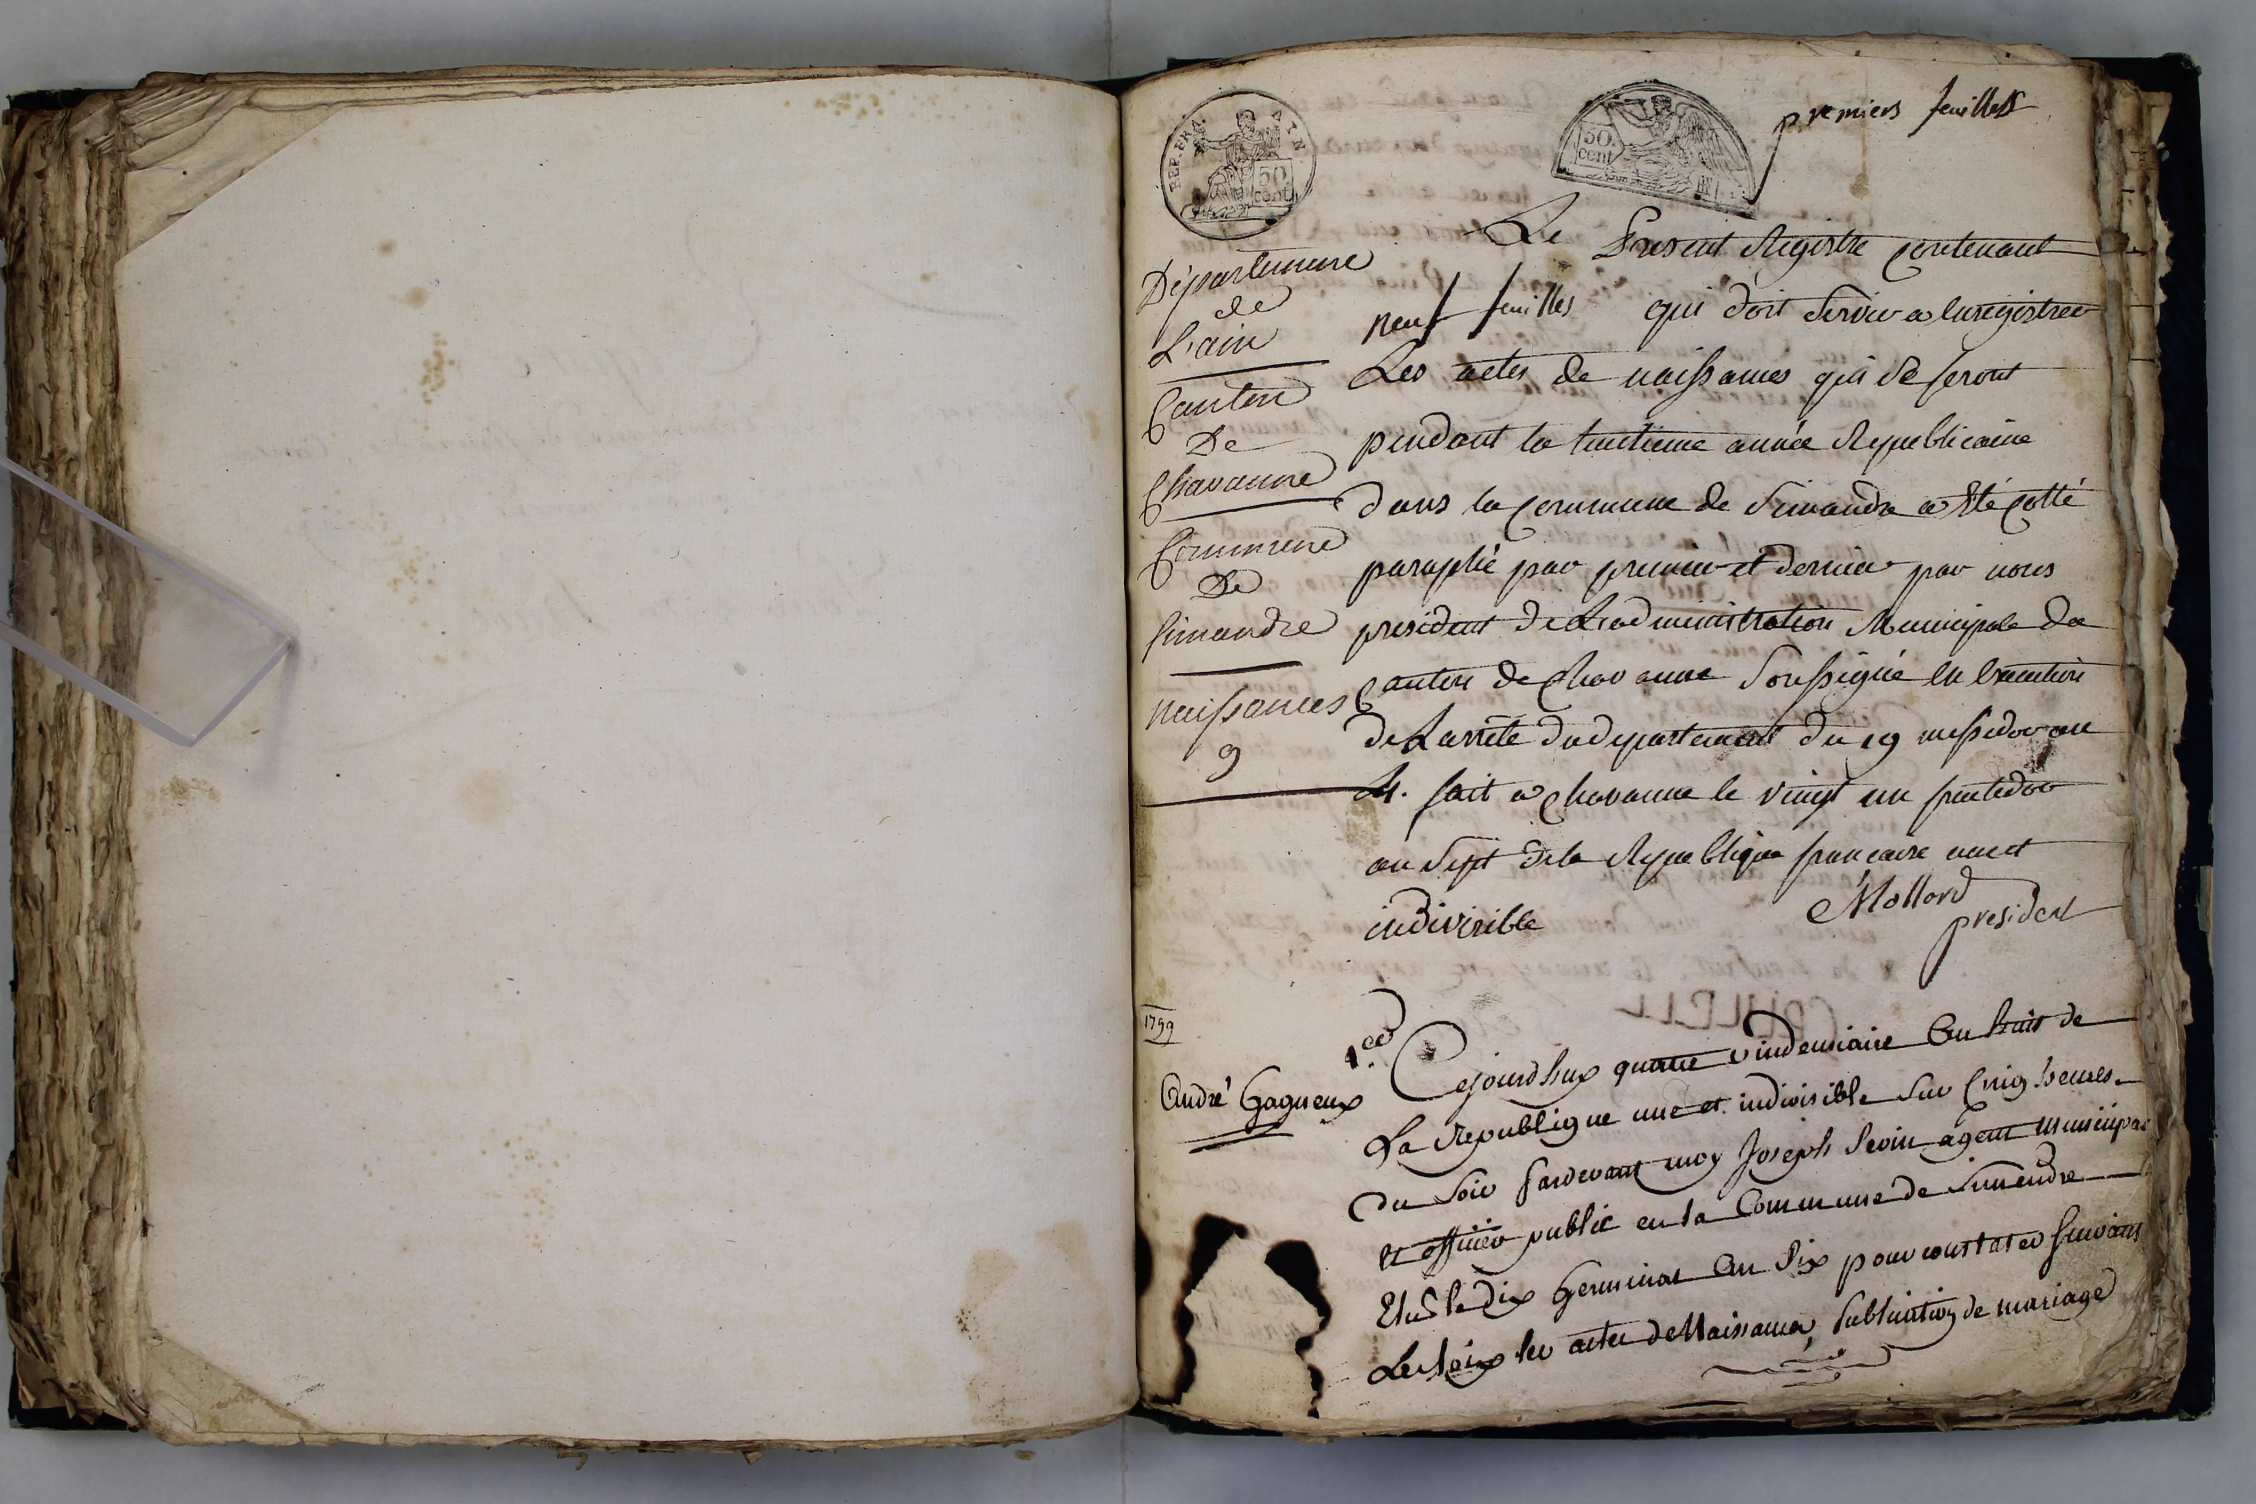 REP. FRA. AIN
50 cent.
50. cent
premiers feuillets
Département
de
L'ain
Canton
De
Chavanne
Commune
De
Simandre
naissances
9
Le Présent Registre Contenant
neuf feuilles qui doit Servir a Enregistrer
Les actes de naissances qui se feront
pendant la huitieme année Republicaine
dans la Commune de Simandre a Eté Cotté
paraphé par premier et dernier par nous
president de L'administration Municipale du
Canton de Chavanne Soussigné en Execution
de Larrêté du departement du 19 messidor an
4. fait a Chavanne le vingt un fructidor
an Sept de la Republique francaise une et
indivisible
Mollard
president
1799
André Gagneux
1er
Cejourdhuy quatre vindemiaire an huit de
La Republique une et indivisible sur Cinq heures
du soir pardevant moy Joseph Sevin agent municipal
et officier public en la Commune de Simandre
Elus le dix Germinal an Six pour constater suivant
Les loix les actes de Naissance, publication de mariage